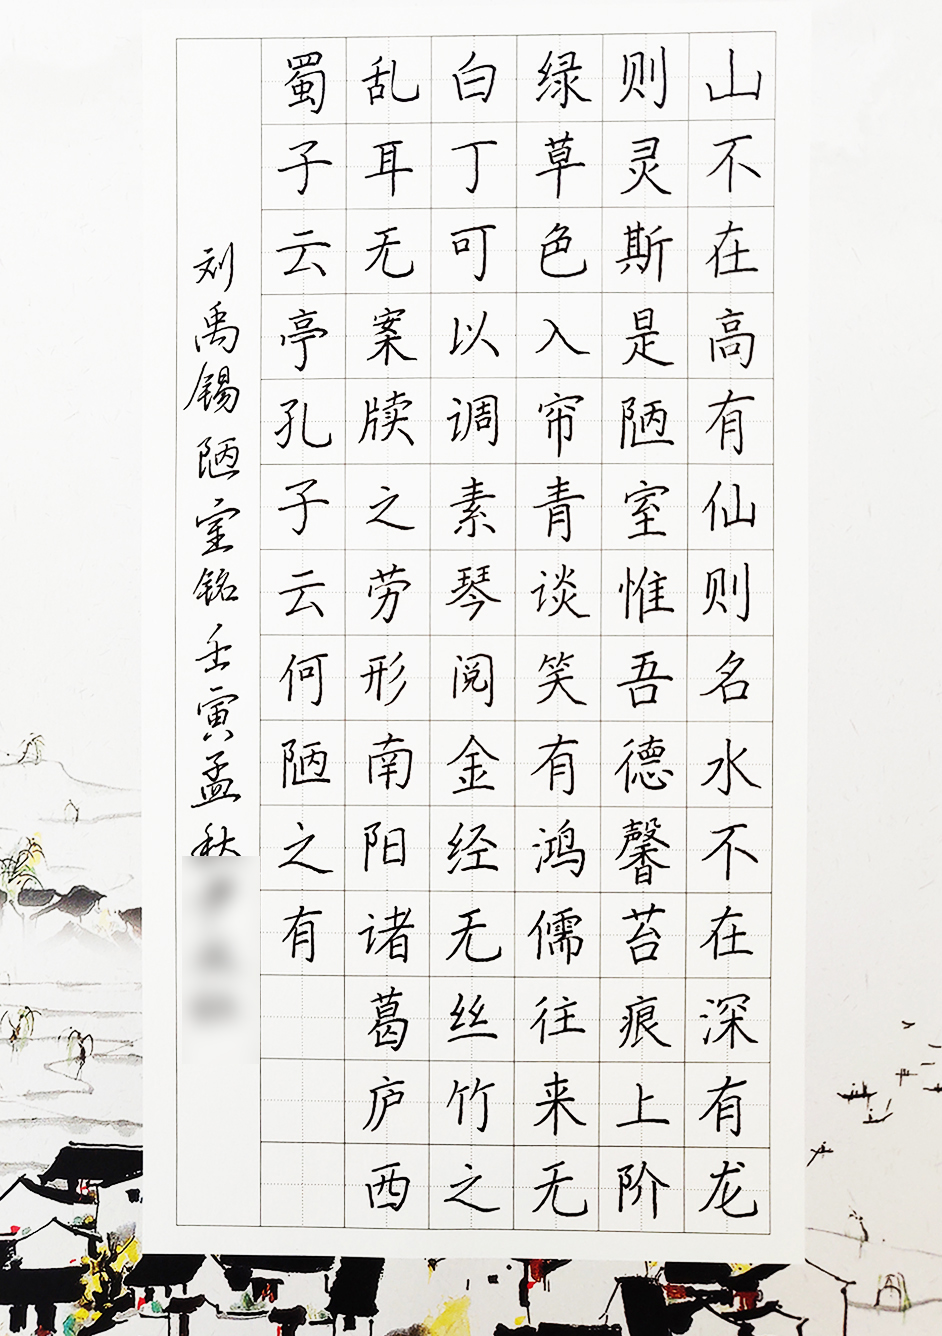 山不在高有仙则名水不在深有龙
则灵斯是陋室惟吾德馨苔痕上阶
绿草色入帘青谈笑有鸿儒往来无
白丁可以调素琴阅金经无丝竹之
乱耳无案牍之劳形南阳诸葛庐西
蜀子云亭孔子云何陋之有
刘禹锡陋室铭壬寅孟秋